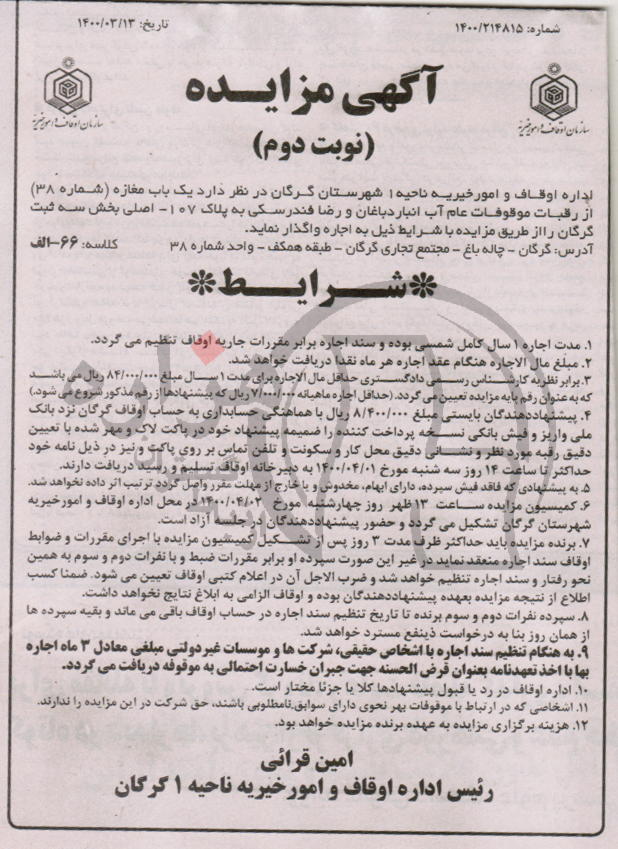 شماره: ۱۴۰۰/۲۱۴۸۱۵
تاریخ: ۱۴۰۰/۰۳/۱۳
آگهی مزایده
(نوبت دوم)
سازمان اوقاف و امور خیریه
سازمان اوقاف و امور خیریه
اداره اوقاف و امورخیریه ناحیه ۱ شهرستان گرگان در نظر دارد یک باب مغازه (شماره ۳۸)
از رقبات موقوفات عام آب انبار دباغان و رضا قندرسکی به پلاک ۱۰۷- اصلی بخش سه ثبت
گرگان را از طریق مزایده با شرایط ذیل به اجاره واگذار نماید.
آدرس: گرگان - چاله باغ - مجتمع تجاری گرگان - طبقه همکف - واحد شماره ۳۸
کلاسه: ۶۶-الف
*شرایط*
۱. مدت اجاره ۱ سال کامل شمسی بوده و سند اجاره برابر مقررات جاریه اوقاف تنظیم می گردد.
۲. مبلغ مال الاجاره هنگام عقد اجاره هر ماه نقدا دریافت خواهد شد.
۳. برابر نظریه کارشناس رسمی دادگستری حداقل مال الاجاره برای مدت ۱ سال مبلغ ۸۴/۰۰۰/۰۰۰ ریال می باشد
که به عنوان رقم پایه مزایده تعیین می گردد. (حداقل اجاره ماهیانه ۷/۰۰۰/۰۰۰ ریال که پیشنهادها از رقم مذکور شروع می شود.)
۴. پیشنهاددهندگان بایستی مبلغ ۸/۴۰۰/۰۰۰ ریال با هماهنگی حسابداری به حساب اوقاف گرگان نزد بانک
ملی واریز و فیش بانکی نسخه پرداخت کننده را ضمیمه پیشنهاد خود در پاکت لاک و مهر شده با تعیین
دقیق رقبه مورد نظر و نشانی دقیق محل کار و سکونت و تلفن تماس بر روی پاکت و نیز در ذیل نامه خود
حداکثر تا ساعت ۱۴ روز سه شنبه مورخ ۱۴۰۰/۰۴/۰۱ به دبیرخانه اوقاف تسلیم و رسید دریافت دارند.
۵. به پیشنهادی که فاقد فیش سپرده، دارای ابهام، مخدوش و یا خارج از مهلت مقرر واصل گردد ترتیب اثر داده نخواهد شد.
۶. کمیسیون مزایده ساعت ۱۳ ظهر روز چهارشنبه مورخ ۱۴۰۰/۰۴/۰۲ در محل اداره اوقاف و امورخیریه
شهرستان گرگان تشکیل می گردد و حضور پیشنهاددهندگان در جلسه آزاد است.
۷. برنده مزایده باید حداکثر ظرف مدت ۳ روز پس از تشکیل کمیسیون مزایده با اجرای مقررات و ضوابط
اوقاف سند اجاره منعقد نماید در غیر این صورت سپرده او برابر مقررات ضبط و با نفرات دوم و سوم به همین
نحو رفتار و سند اجاره تنظیم خواهد شد و ضرب الاجل آن در اعلام کتبی اوقاف تعیین می شود. ضمنا کسب
اطلاع از نتیجه مزایده بعهده پیشنهاددهندگان بوده و اوقاف الزامی به ابلاغ نتایج نخواهد داشت.
۸. سپرده نفرات دوم و سوم برنده تا تاریخ تنظیم سند اجاره در حساب اوقاف باقی می ماند و بقیه سپرده ها
از همان روز بنا به درخواست ذینفع مسترد خواهد شد.
۹. به هنگام تنظیم سند اجاره با اشخاص حقیقی، شرکت ها و موسسات غیردولتی مبلغی معادل ۳ ماه اجاره
بها با اخذ تعهدنامه بعنوان قرض الحسنه جهت جبران خسارت احتمالی به موقوفه دریافت می گردد.
۱۰. اداره اوقاف در رد یا قبول پیشنهادها کلا یا جزئا مختار است.
۱۱. اشخاصی که در ارتباط با موقوفات بهر نحوی دارای سوابق نامطلوبی باشند، حق شرکت در این مزایده را ندارند.
۱۲. هزینه برگزاری مزایده به عهده برنده مزایده خواهد بود.
امین قرائی
رئیس اداره اوقاف و امورخیریه ناحیه ۱ گرگان